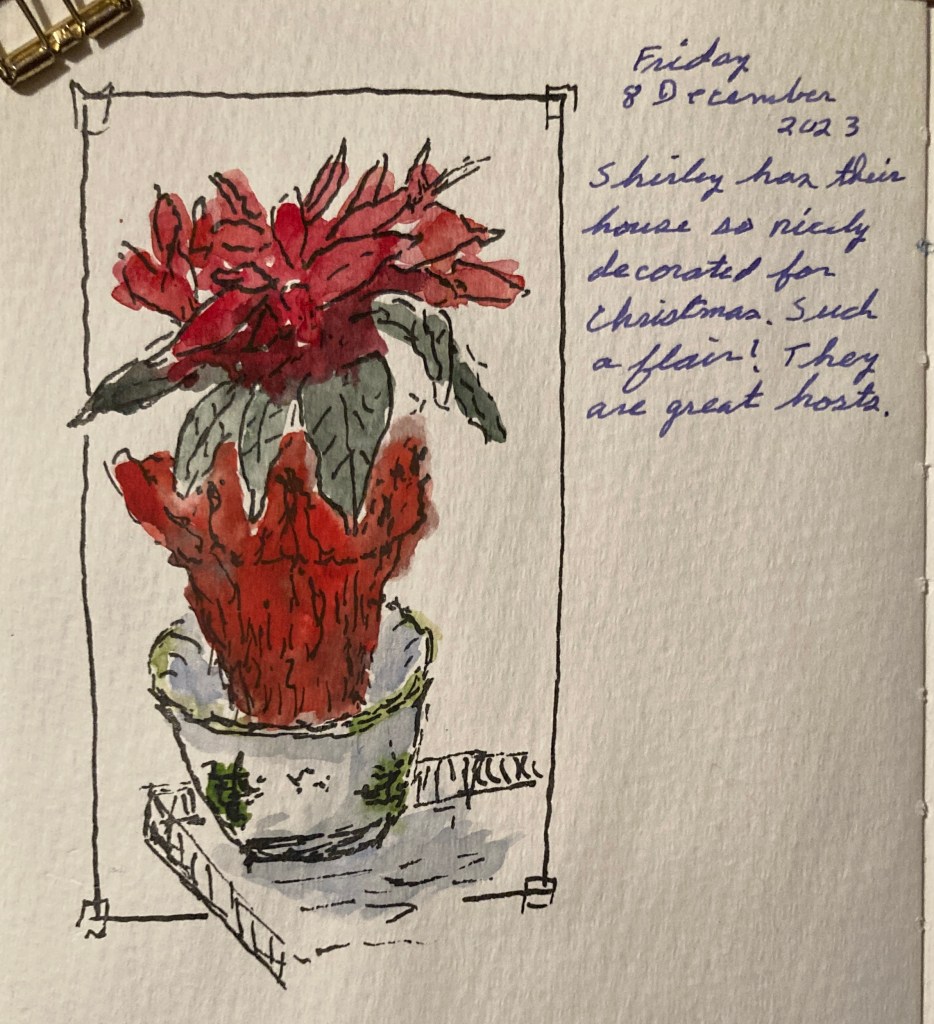 Friday
8 December
2023
Shirley has their
house so nicely
decorated for
Christmas. Such
a flair! They
are great hosts.